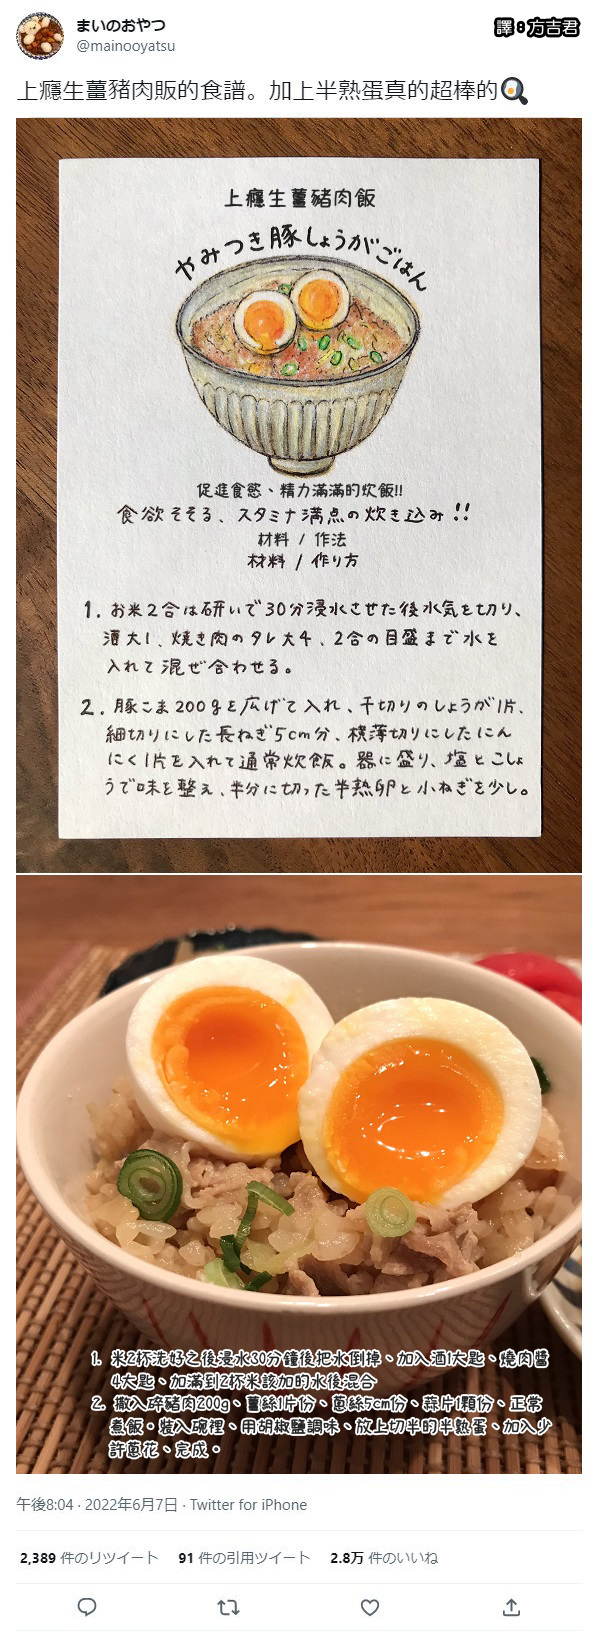 まいのおやつ
譯:方吉君
@mainooyatsu
上癮生薑豬肉販的食譜。加上半熟蛋真的超棒的🍳
上癮生薑豬肉飯
やみつき豚しょうがごはん
促進食慾、精力滿滿的炊飯!!
食欲そそる、スタミナ満点の炊き込み!!
材料 / 作法
材料 / 作り方
1. お米2合は研いで30分浸水させた後水気を切り、
酒大1、焼き肉のタレ大4、2合の目盛まで水を
入れて混ぜ合わせる。
2. 豚こま200gを広げて入れ、千切りのしょうが1片、
細切りにした長ねぎ5cm分、横薄切りにしたにん
にく1片を入れて通常炊飯。器に盛り、塩とこしょ
うで味を整え、半分に切った半熟卵と小ねぎを少し。
1. 米2杯洗好之後浸水30分鐘後把水倒掉、加入酒1大匙、燒肉醬
4大匙、加滿到2杯米該加的水後混合
2. 撒入碎豬肉200g、薑絲1片份、蔥絲5cm份、蒜片1顆份、正常
煮飯。裝入碗裡、用胡椒鹽調味、放上切半的半熟蛋、加入少
許蔥花、完成。
午後8:04 · 2022年6月7日 · Twitter for iPhone
2,389 件のリツイート 91 件の引用ツイート 2.8万 件のいいね